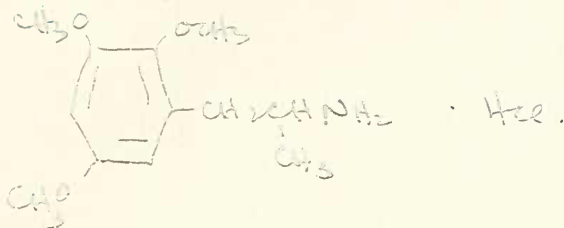 CH3O OCH3
CH2CHNH2 · HCl.
CH3
CH3O